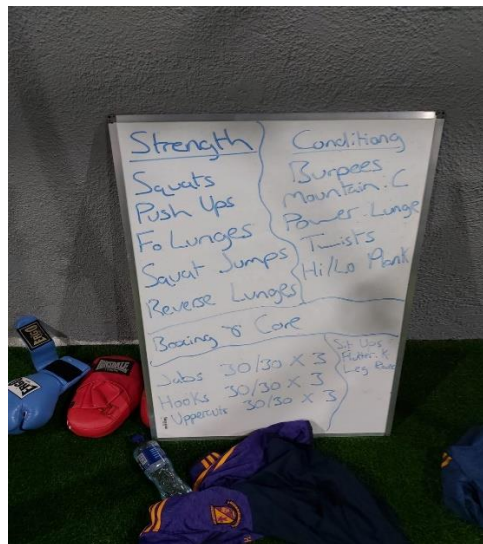 Strength
Squats
Push Ups
Fo Lunges
Squat Jumps
Reverse Lunges
Conditiong
Burpees
Mountain.C
Power.Lunge
Twists
Hi/Lo Plank
Boxing & Core
Jabs 30/30 x 3
Hooks 30/30 x 3
Uppercuts 30/30 x 3
Sit Ups
Flutter.K
Leg
LONSDALE